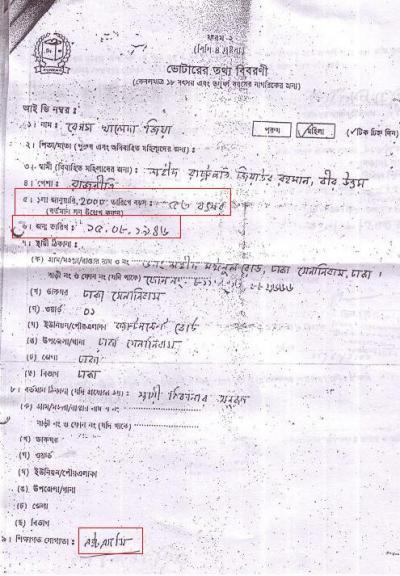 ফরম-২
(বিধি ৪ দ্রষ্টব্য)
ভোটারের তথ্য বিবরণী
(কেবলমাত্র ১৮ বৎসর এবং তদূর্ধ্ব বয়সের নাগরিকের জন্য)
আই ডি নম্বর :
১। নাম : বেগম খালেদা জিয়া
পুরুষ মহিলা (টিক চিহ্ন দিন)
২। পিতা/মাতা (পুরুষ এবং অবিবাহিত মহিলাদের জন্য) :
৩। স্বামী (বিবাহিত মহিলাদের জন্য) : শহীদ রাষ্ট্রপতি জিয়াউর রহমান, বীর উত্তম
৪। পেশা : রাজনীতি
৫। ১লা জানুয়ারি, 2000 তারিখে বয়স : বৎসর
(বর্তমান সন উল্লেখ করুন)
৬। জন্ম তারিখ : ১৫.০৮.১৯৪৬
৭। স্থায়ী ঠিকানা :
(ক) গ্রাম/মহল্লা/রাস্তার নাম ও নং শহীদ মইনুল রোড, ঢাকা সেনানিবাস, ঢাকা।
বাড়ী নং ও ফোন নং (যদি থাকে) ফোন নং-
(খ) ডাকঘর ঢাকা সেনানিবাস
(গ) ওয়ার্ড ০১
(ঘ) ইউনিয়ন/পৌরএলাকা ক্যান্টনমেন্ট বোর্ড
(ঙ) উপজেলা/থানা ঢাকা সেনানিবাস
(চ) জেলা ঢাকা
(ছ) বিভাগ ঢাকা
৮। বর্তমান ঠিকানা (যদি প্রযোজ্য হয়) : স্থায়ী ঠিকানার অনুরূপ
(ক) গ্রাম/মহল্লা/রাস্তার নাম ও নং
বাড়ী নং ও ফোন নং (যদি থাকে)
(খ) ডাকঘর
(গ) ওয়ার্ড
(ঘ) ইউনিয়ন/পৌরএলাকা
(ঙ) উপজেলা/থানা
(চ) জেলা
(ছ) বিভাগ
৯। শিক্ষাগত যোগ্যতা :